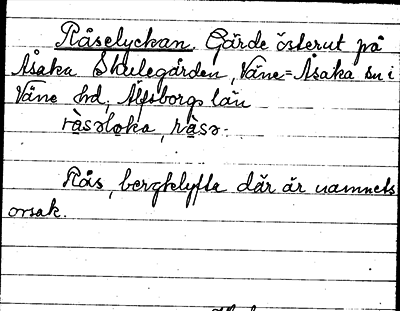 Råselyckan. Gärde österut på
Åsaka Skulegården, Väne=Åsaka sn i
Väne hd, Älfsborgs län
ràsəlɷka, ràsə-
Rås, bergklyfta där är namnets
orsak.